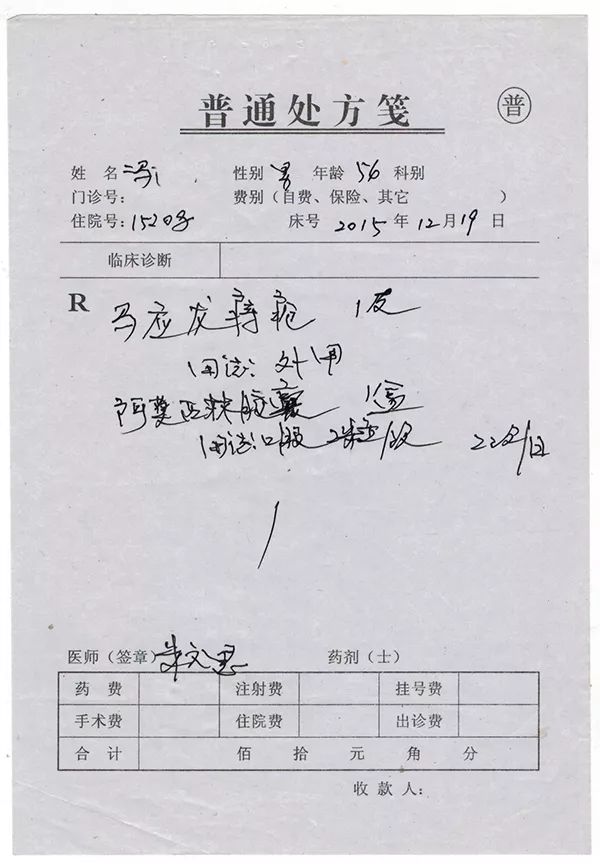 普通处方笺 普
姓 名 性别 男 年龄 56 科别
门诊号: 费别（自费、保险、其它 ）
住院号: 床号 2015 年 12 月 19 日
临床诊断
R 马应发痔疮 1支
用法: 外用
阿莫西林胶囊 1盒
用法: 口服 2粒/次 2次/日
医师（签章） 朱文 药剂（士）
药 费 注射费 挂号费
手术费 住院费 出诊费
合 计 佰 拾 元 角 分
收 款 人: